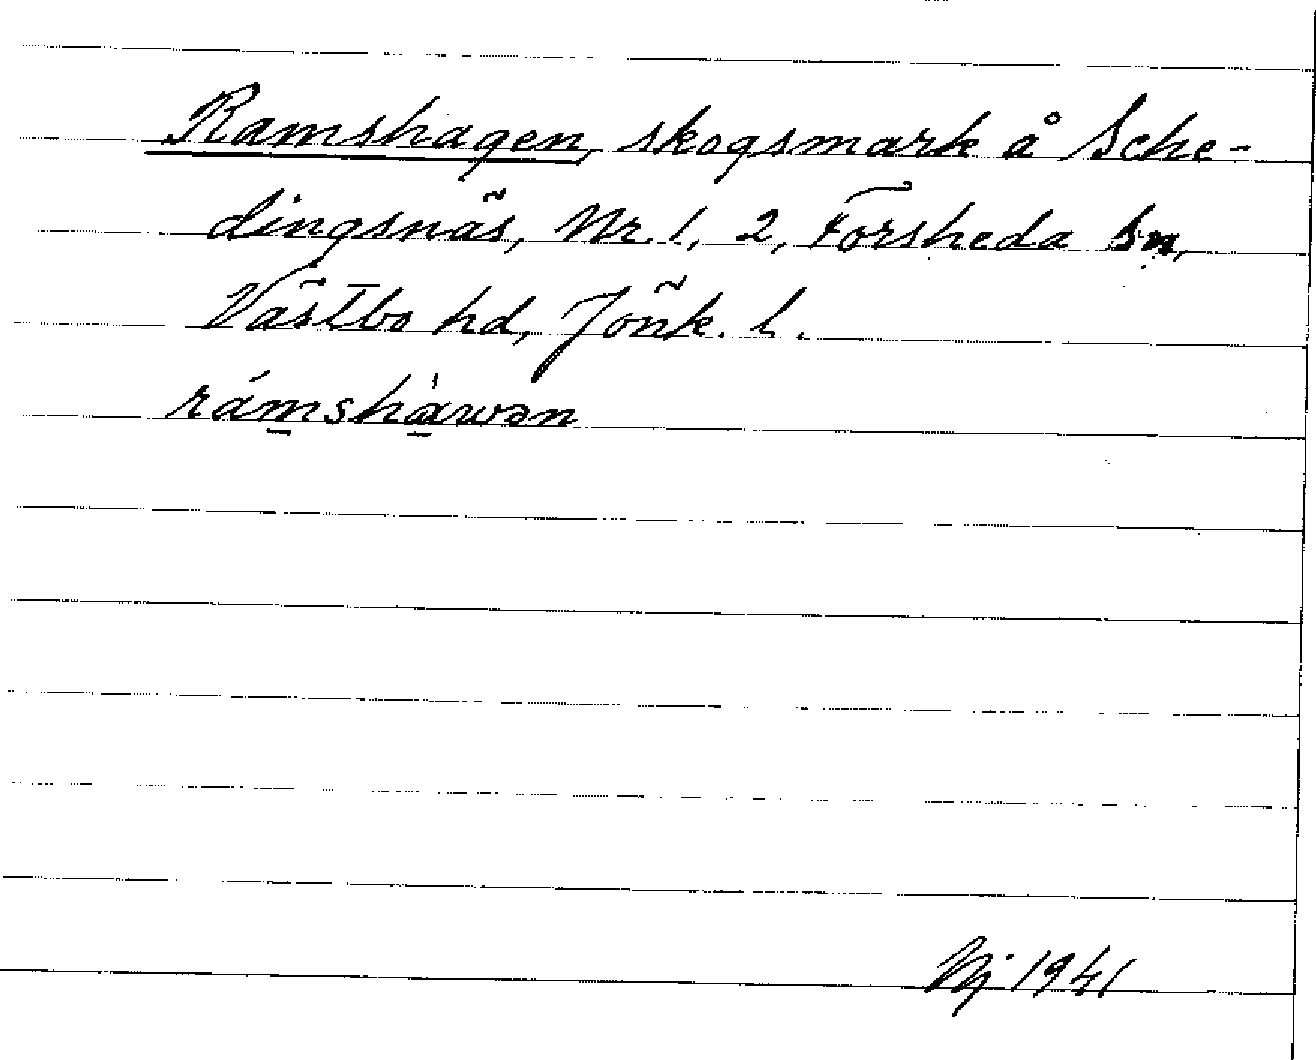 Ramshagen, skogsmark å Sche-
dingsnäs, Nr 1, 2, Forsheda sn,
Västbo hd, Jönk. l.
rámshàwən
1941